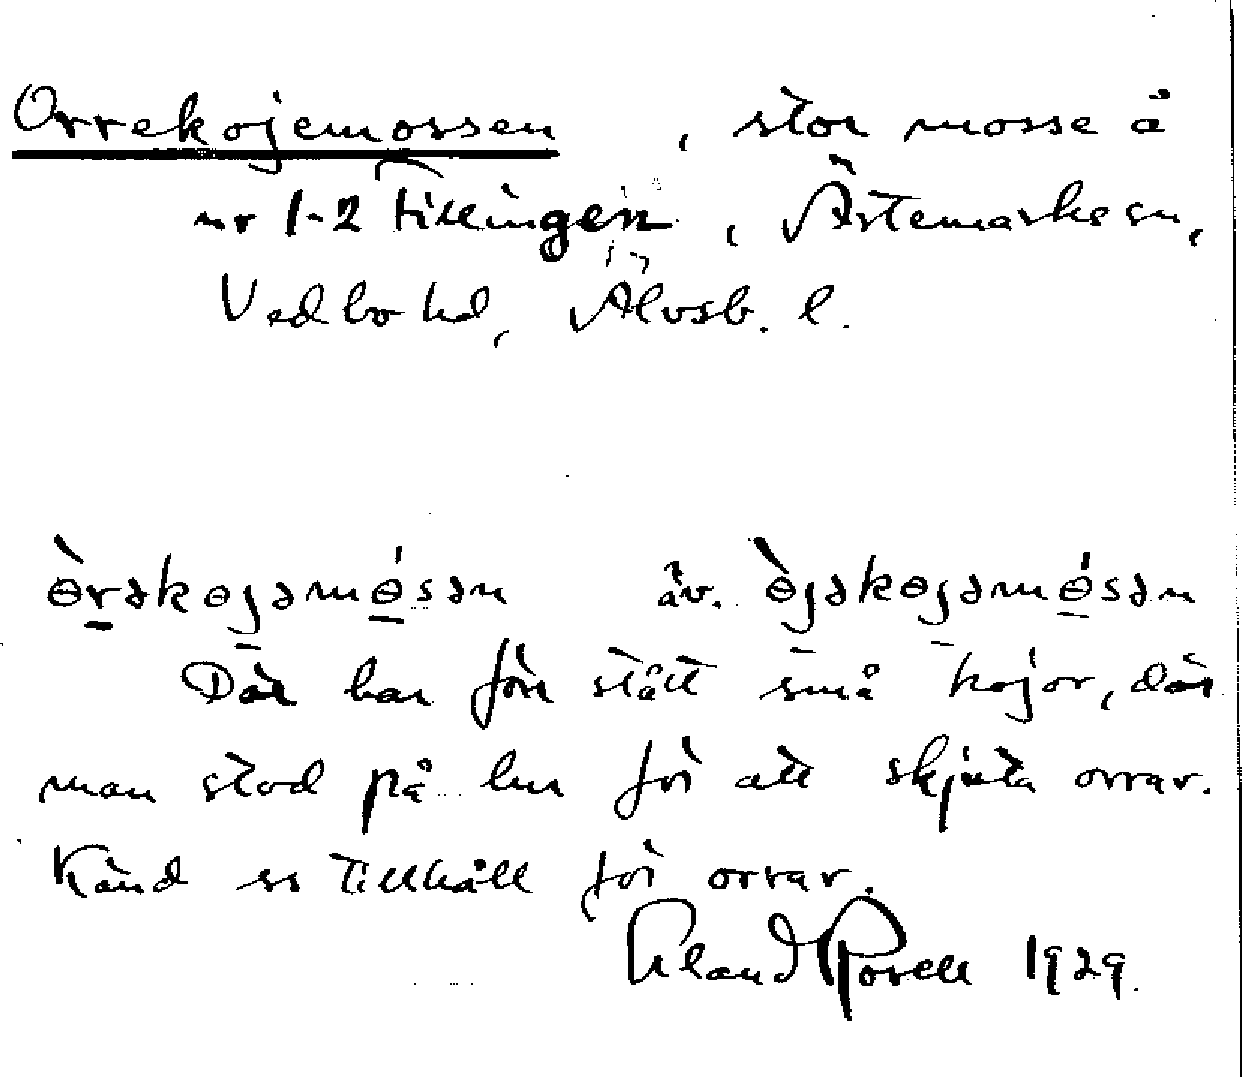 Orrekojemossen, stor mosse å
nr 1-2 Tillingen, Ärtemarks sn,
Vedbo hd, Älvsb. l.
ɵ̀rəkɵjəmɵ́sən äv. ɵ̀jəkɵjəmɵ́sən
Där har förr stått små kojor, där
man stod på lur för att skjuta orrar.
Känd ss tillhåll för orrar.
Erland Rosell 1929.